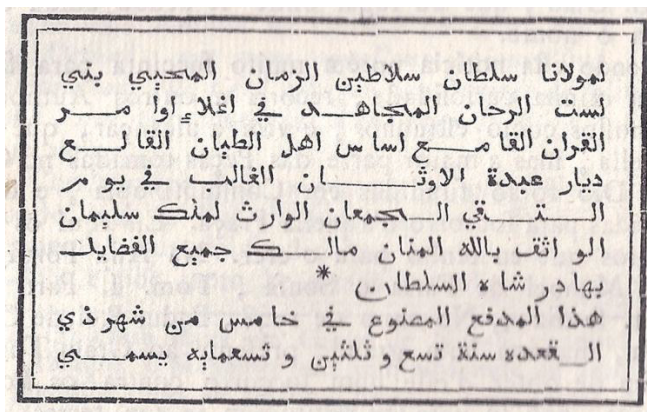 لمولانا سلطان سلاطين الزمان المحيي بني
لست الرحان المجاهد في اعلاٍ اوا مر
القران القامع اساس اهل الطيان القالع
ديار عبدة الاوثان الغالب في يوم
التقي الجمعان الوارث لملك سليمان
الواثق بالله المنان مالك جميع الفضايل
بهادر شاه السلطان *
هذا المدفع المصنوع في خامس من شهر ذي
القعده سنة تسع و ثلثين و تسعمايه يسمي